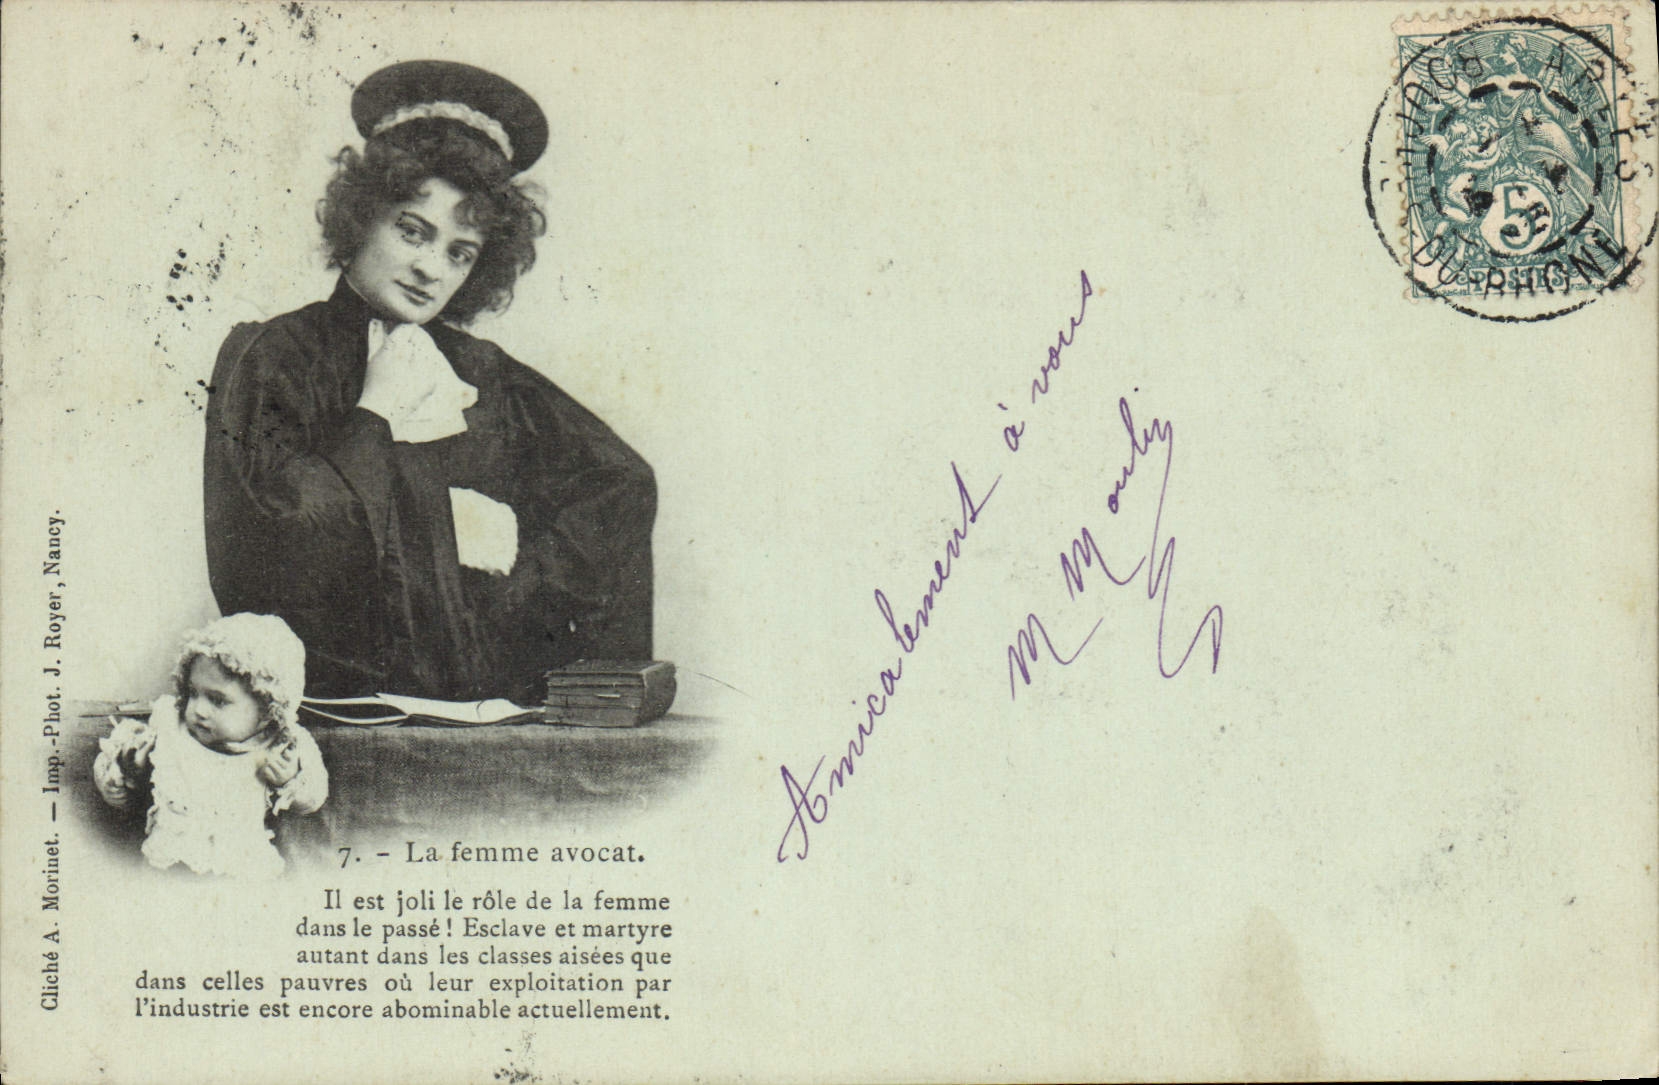 ARLES
BOUCHES-DU-RHONE
5
POSTES
Amicalement à vous
M Moulin
Cliché A. Morinet. — Imp.-Phot. J. Royer, Nancy.
7. - La femme avocat.
Il est joli le rôle de la femme
dans le passé ! Esclave et martyre
autant dans les classes aisées que
dans celles pauvres où leur exploitation par
l'industrie est encore abominable actuellement.